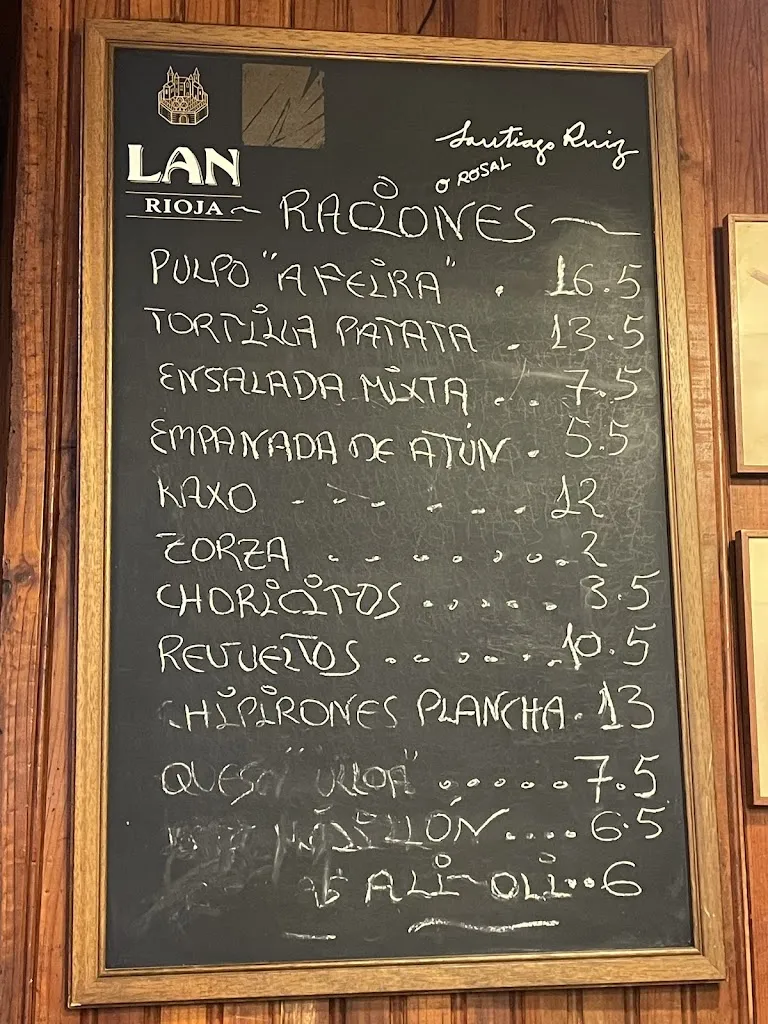 LAN
RIOJA
Santiago Ruiz
O ROSAL
~ RACIONES ~
PULPO "A FEIRA" . 16.5
TORTILLA PATATA . 13.5
ENSALADA MIXTA . . . 7.5
EMPANADA DE ATÚN . 5.5
KAXO - - - - - - - 12
ZORZA . . . . . . . . 2
CHORICITOS . . . . . 3.5
REVUELTOS . . . . . . . 10.5
CHIPIRONES PLANCHA . 13
QUESO "ULLOA" . . . . . . 7.5
.... 6.5
ALI-OLI...6